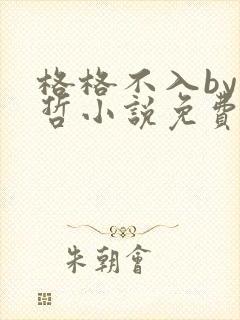 格格不入by
哲小說免費
朱朝會